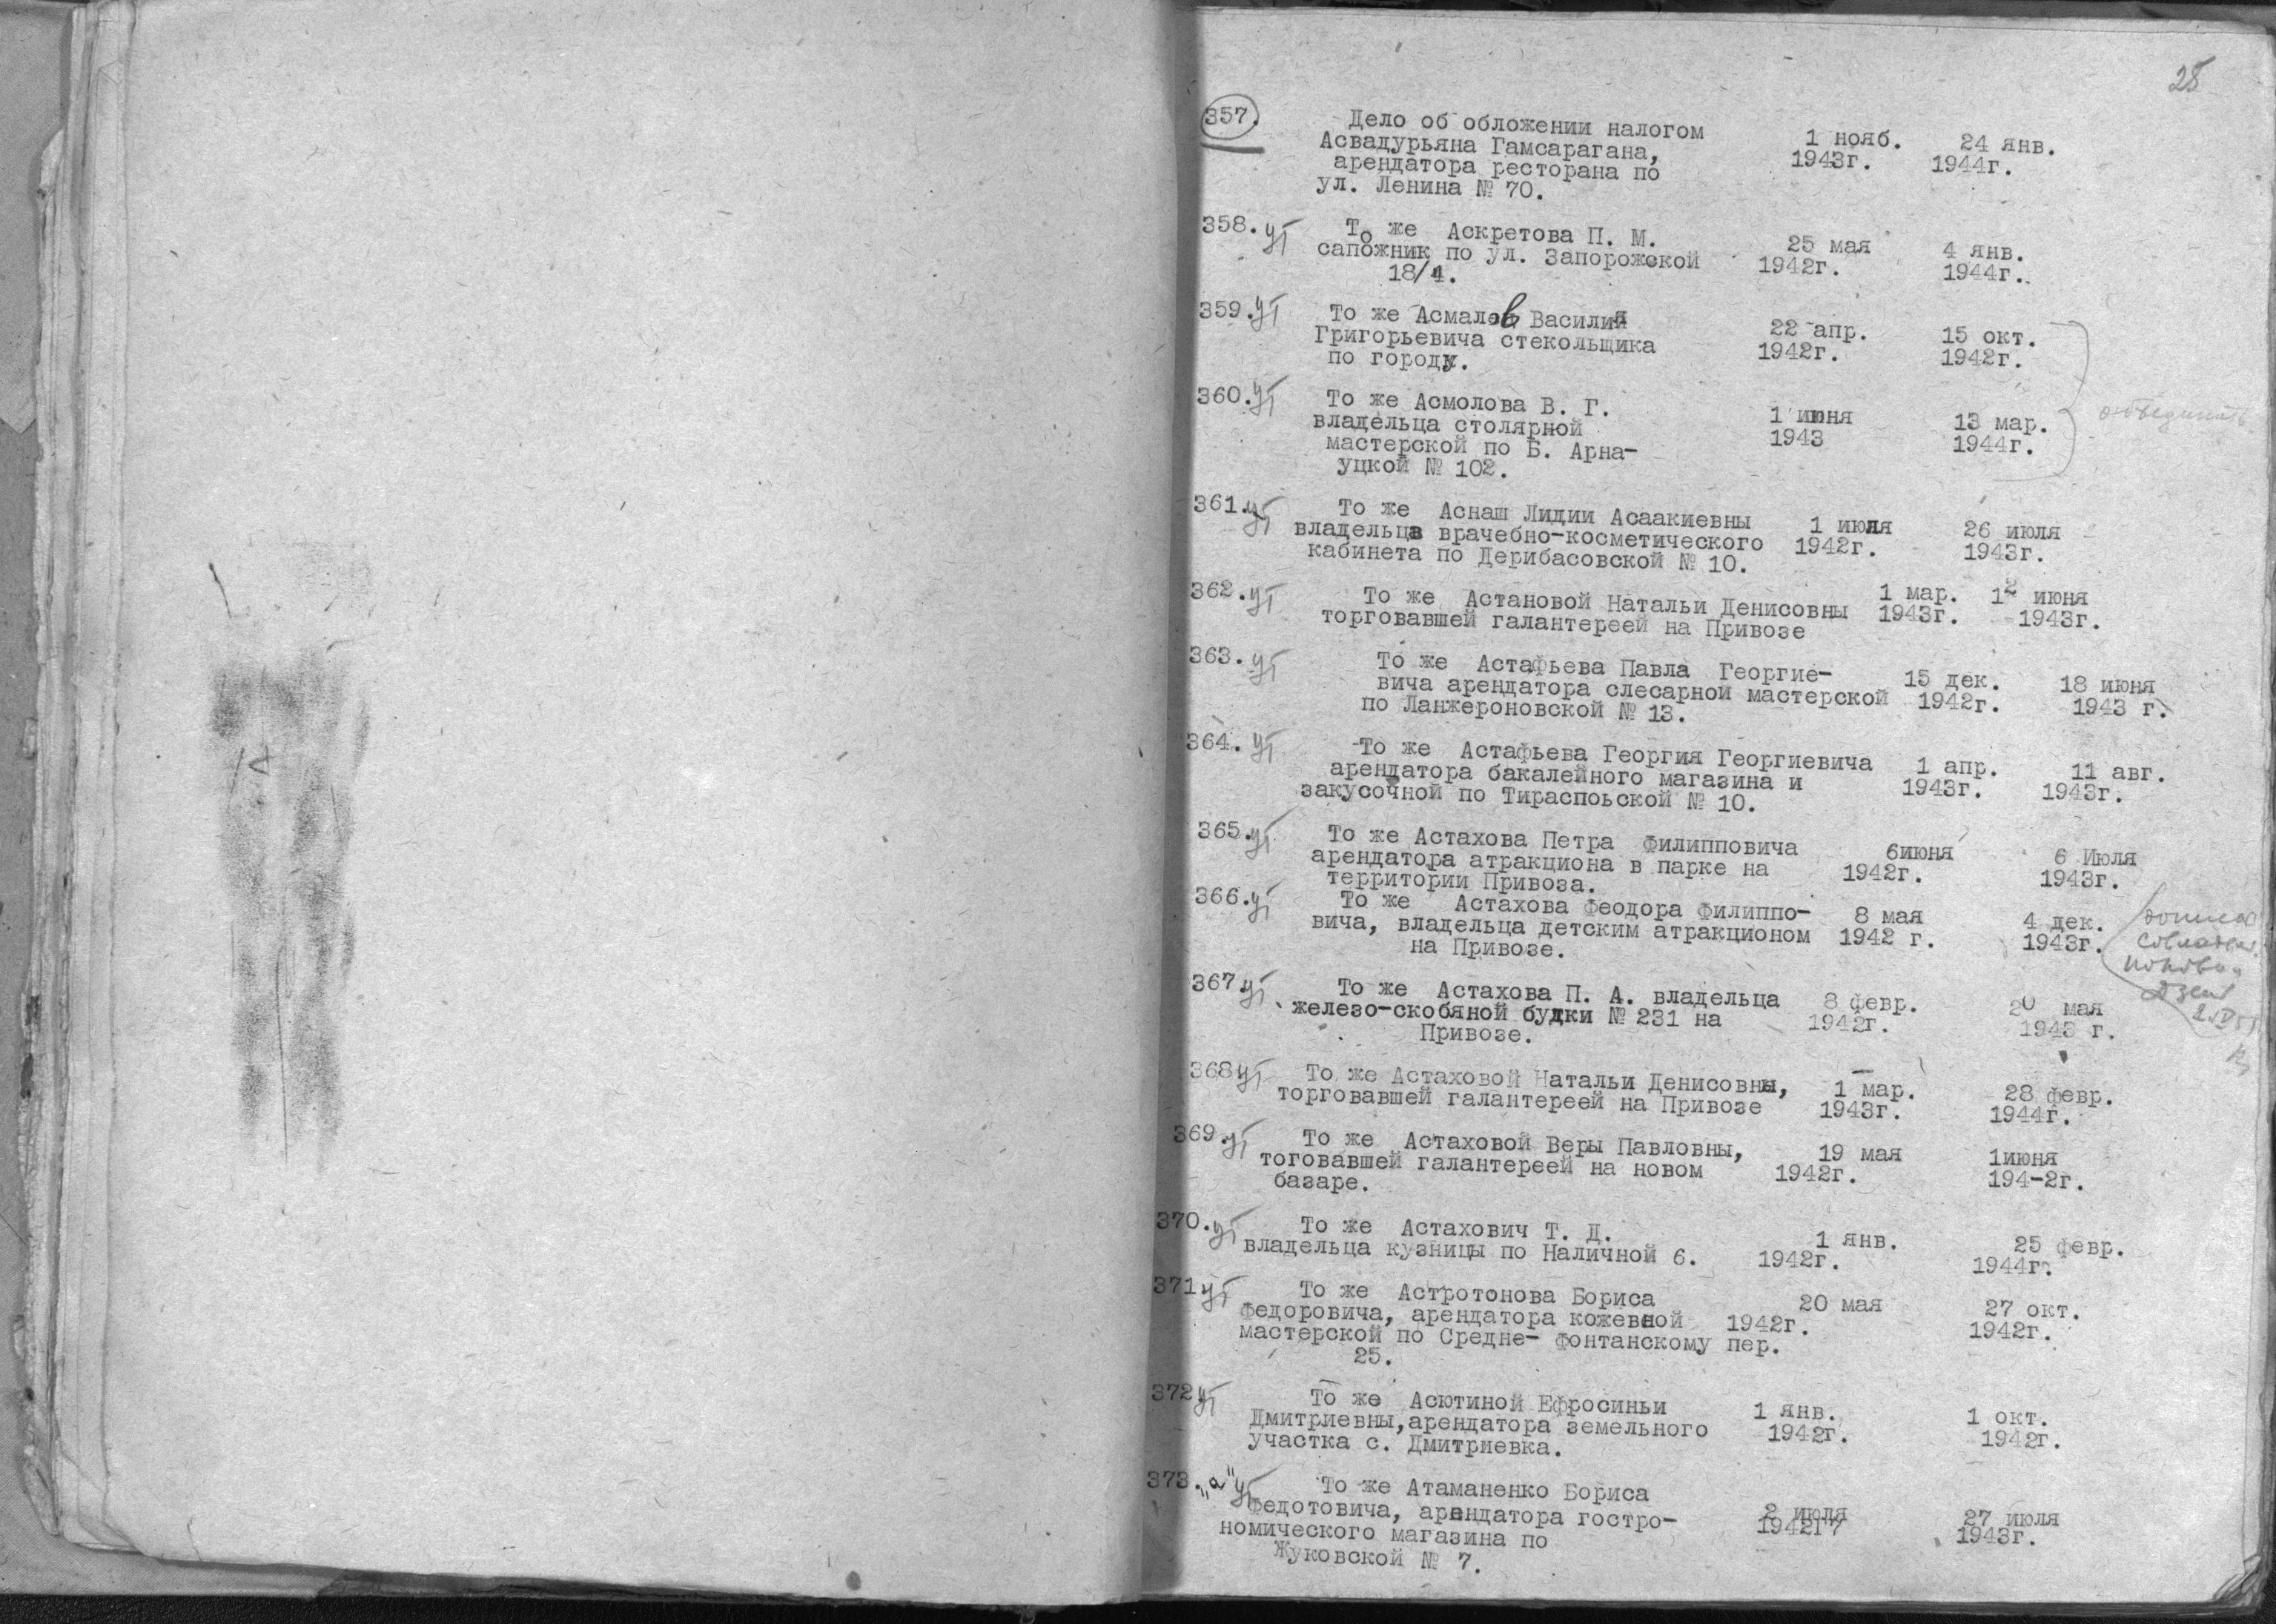 28
357. Дело об обложении налогом
Асвадурьяна Гамсарагана, 1 нояб. 24 янв.
арендатора ресторана по 1943г. 1944г.
ул. Ленина № 70.
358. То же Аскретова П. М. 25 мая 4 янв.
сапожник по ул. Запорожской 1942г. 1944г.
18/4.
359. То же Асмалов Василия 22 апр. 15 окт.
Григорьевича стекольщика 1942г. 1942г.
по городу.
360. То же Асмолова В. Г. 1 июня 13 мар.
владельца столярной 1943 1944г.
мастерской по Б. Арна-
уцкой № 102.
объединить
361. То же Аснаш Лидии Асаакиевны 1 июля 26 июля
владельца врачебно-косметического 1942г. 1943г.
кабинета по Дерибасовской № 10.
362. То же Астановой Натальи Денисовны 1 мар. 12 июня
торговавшей галантереей на Привозе 1943г. 1943г.
363. То же Астафьева Павла Георгие- 15 дек. 18 июня
вича арендатора слесарной мастерской 1942г. 1943 г.
по Ланжероновской № 13.
364. То же Астафьева Георгия Георгиевича 1 апр. 11 авг.
арендатора бакалейного магазина и 1943г. 1943г.
закусочной по Тираспоьской № 10.
365. То же Астахова Петра Филипповича 6июня 6 Июля
арендатора атракциона в парке на 1942г. 1943г.
территории Привоза.
366. То же Астахова Феодора Филиппо- 8 мая 4 дек.
вича, владельца детским атракционом 1942 г. 1943г.
на Привозе.
367 То же Астахова П. А. владельца 8 февр. 20 мая
железо-скобяной будки № 231 на 1942г. 1943 г.
Привозе.
368 То же Астаховой Натальи Денисовны, 1 мар. 28 февр.
торговавшей галантереей на Привозе 1943г. 1944г.
369. То же Астаховой Веры Павловны, 19 мая 1июня
тоговавшей галантереей на новом 1942г. 194-2г.
базаре.
370. То же Астахович Т. Д. 1 янв. 25 февр.
владельца кузницы по Наличной 6. 1942г. 1944г.
371 То же Астротонова Бориса 20 мая 27 окт.
Федоровича, арендатора кожевной 1942г. 1942г.
мастерской по Средне- Фонтанскому пер.
25.
372 То же Асютиной Ефросиньи 1 янв. 1 окт.
Дмитриевны, арендатора земельного 1942г. 1942г.
участка с. Дмитриевка.
373. "а" То же Атаманенко Бориса
Федотовича, арендатора гостро- 2 июля 27 июля
номического магазина по 1942г7 1943г.
Жуковской № 7.